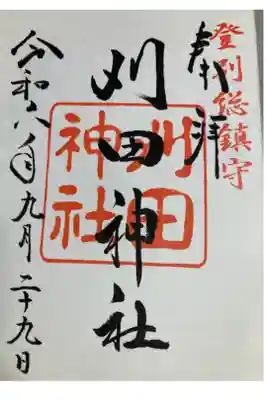 登別総鎮守
奉拝
刈田神社
刈田
神社
令和八年九月二十九日